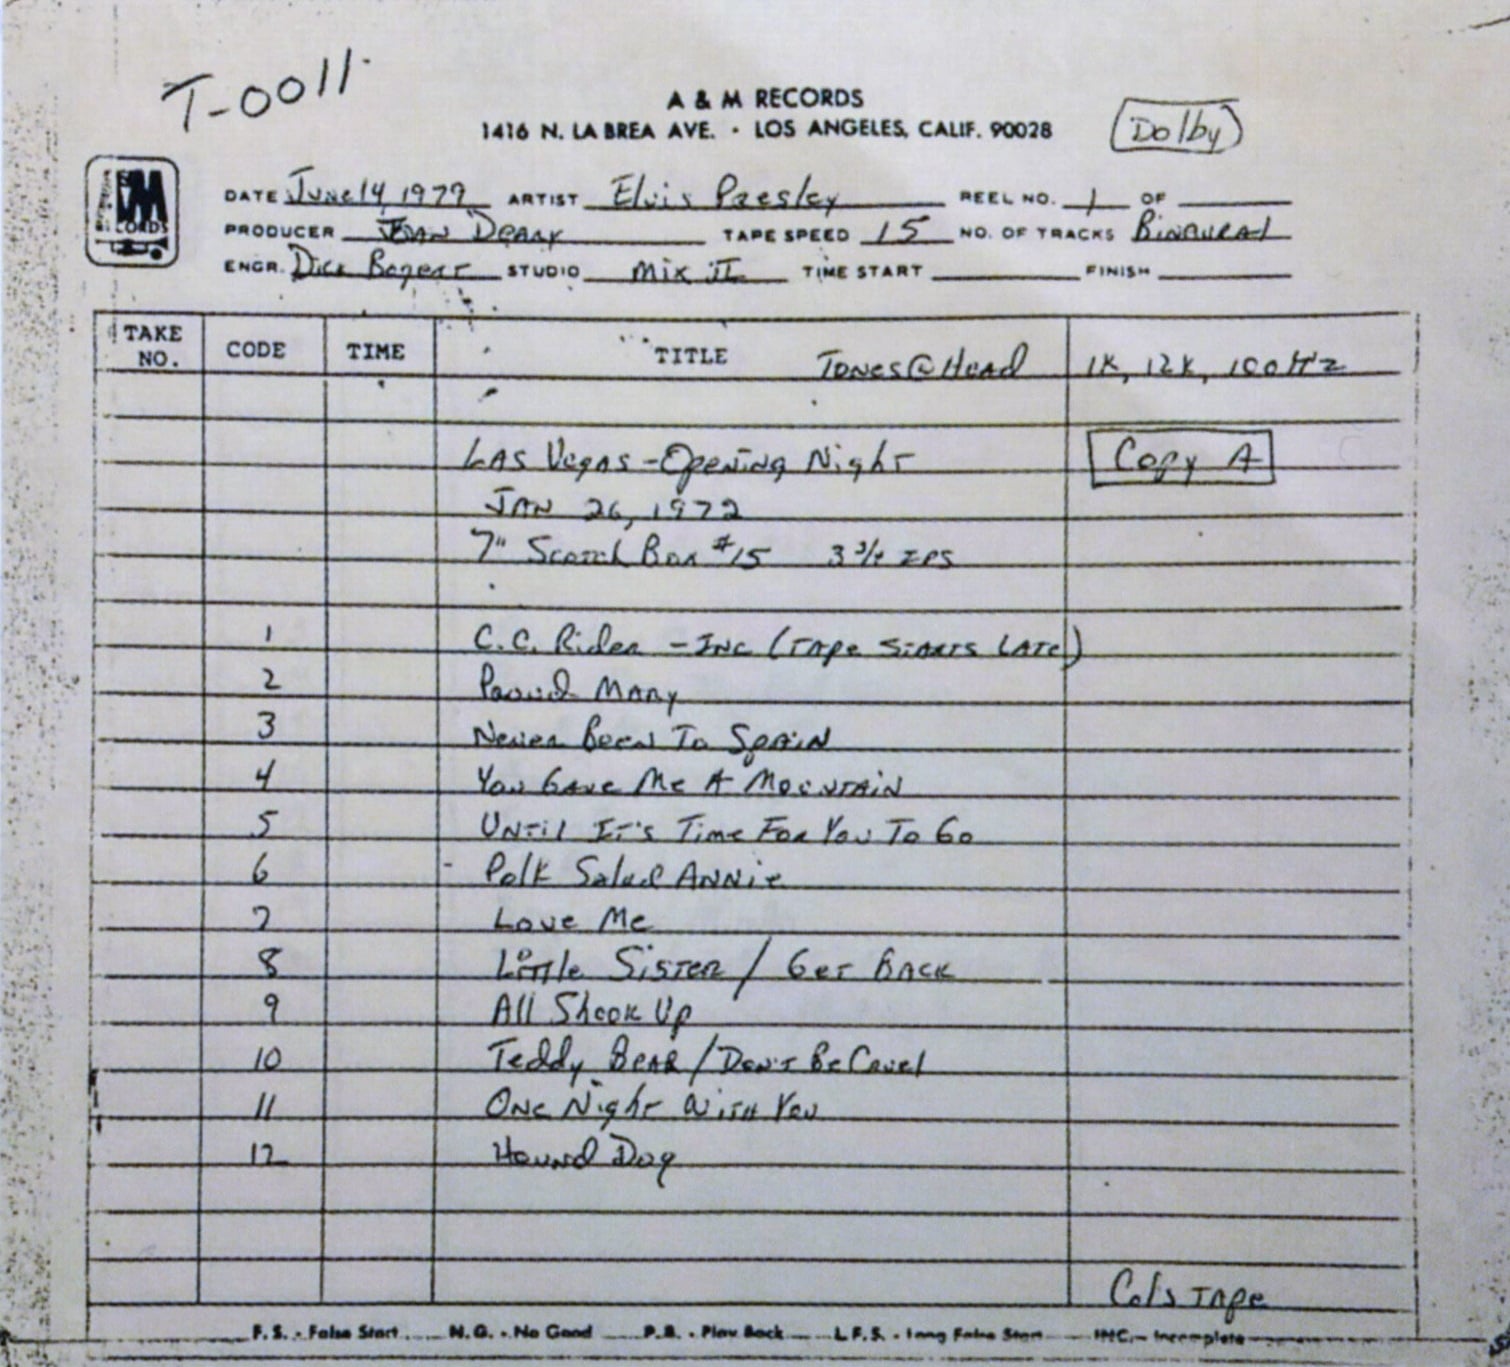 T-0011
A & M RECORDS
1416 N. LA BREA AVE. · LOS ANGELES, CALIF. 90028
Dolby
DATE June 14, 1979 ARTIST Elvis Presley REEL NO. 1 OF
PRODUCER Joan Deary TAPE SPEED 15 NO. OF TRACKS Binaural
ENGR. Dick Bogert STUDIO Mix II TIME START FINISH
TAKE NO. CODE TIME TITLE Tones @ Head 1K, 12K, 100 Hz
Las Vegas - Opening Night Copy A
Jan 26, 1972
7" Scotch Box #15 3 3/4 IPS
1 C.C. Rider - Inc (Tape Starts Late)
2 Proud Mary
3 Never Been To Spain
4 You Gave Me A Mountain
5 Until It's Time For You To Go
6 - Polk Salad Annie
7 Love Me
8 Little Sister / Get Back
9 All Shook Up
10 Teddy Bear / Don't Be Cruel
11 One Night With You
12 Hound Dog
Cols Tape
F.S. - False Start N.G. - No Good P.B. - Play Back L.F.S. - Long False Start INC. - Incomplete